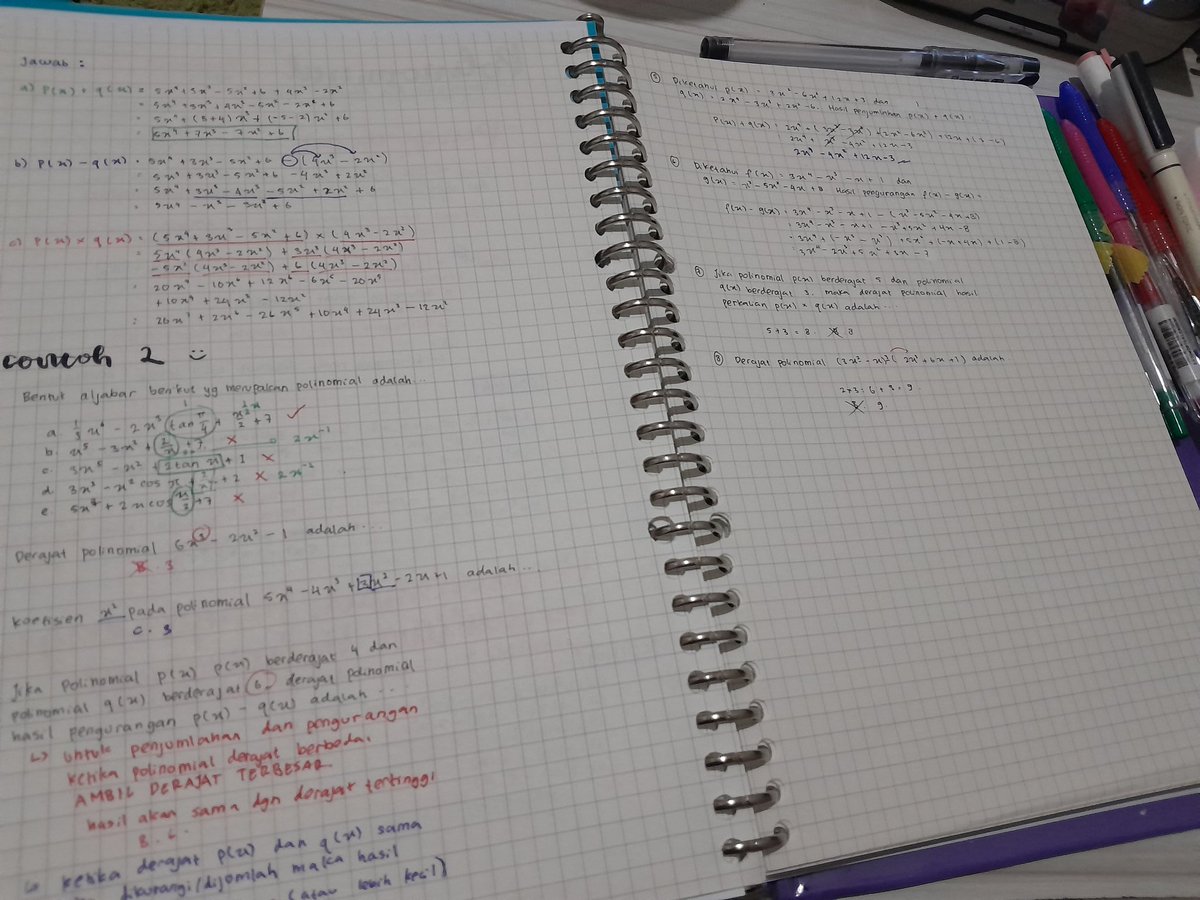 Jawab :
a) P(x) + q(x) = 5x⁴ + 3x³ - 5x² + 6 + 4x³ - 2x²
= 5x⁴ + 3x³ + 4x³ - 5x² - 2x² + 6
= 5x⁴ + (3+4)x³ + (-5-2)x² + 6
= 5x⁴ + 7x³ - 7x² + 6
b) P(x) - q(x) = 5x⁴ + 3x³ - 5x² + 6 - (4x³ - 2x²)
= 5x⁴ + 3x³ - 5x² + 6 - 4x³ + 2x²
= 5x⁴ + 3x³ - 4x³ - 5x² + 2x² + 6
= 5x⁴ - x³ - 3x² + 6
c) P(x) x q(x) = (5x⁴ + 3x³ - 5x² + 6) x (4x³ - 2x²)
= 5x⁴ (4x³ - 2x²) + 3x³ (4x³ - 2x²)
- 5x² (4x³ - 2x²) + 6 (4x³ - 2x²)
= 20x⁷ - 10x⁶ + 12x⁶ - 6x⁵ - 20x⁵
+ 10x⁴ + 24x³ - 12x²
= 20x⁷ + 2x⁶ - 26x⁵ + 10x⁴ + 24x³ - 12x²
contoh 2
Bentuk aljabar berikut yg merupakan polinomial adalah...
b. x⁵ - 3x² + 2/x + 7 x
2x⁻¹
c. 3x⁵ - x² + 2 tan x + 1 x
d. 3x³ - x² cos π + + 2 x 2x⁻²
e. 5x⁴ + 2x cos x/2 + 7 x
Derajat polinomial 6x³ - 2x² - 1 adalah...
3
Koefisien x² pada polinomial 5x⁴ - 4x³ + 3x² - 2x + 1 adalah...
c. 3
Jika polinomial p(x) p(x) berderajat 4 dan
polinomial q(x) berderajat 6. derajat polinomial
hasil pengurangan p(x) - q(x) adalah...
↳ untuk penjumlahan dan pengurangan
ketika polinomial derajat berbeda.
AMBIL DERAJAT TERBESAR
hasil akan sama dgn derajat tertinggi
B. 6.
↳ ketika derajat p(x) dan q(x) sama
dikurangi/dijumlah maka hasil
(atau lebih kecil)
⑤ Diketahui p(x) = 3x³ - 6x² + 12x + 3 dan
q(x) = 2x⁴ - 3x³ + 2x² - 6. Hasil penjumlahan p(x) + q(x)
P(x) + q(x) = 2x⁴ + (3x³ - 3x³) + (2x² - 6x²) + 12x + (3-6)
2x⁴ - 4x² + 12x - 3
⑥ Diketahui f(x) = 3x⁴ - x³ - x + 1 dan
g(x) = x³ - 5x² - 4x + 8 Hasil pengurangan f(x) - g(x) =
f(x) - g(x) = 3x⁴ - x³ - x + 1 - (x³ - 5x² - 4x + 8)
= 3x⁴ - x³ - x + 1 - x³ + 5x² + 4x - 8
= 3x⁴ + (-x³ - x³) + 5x² + (-x + 4x) + (1 - 8)
= 3x⁴ - 2x³ + 5x² + 3x - 7
Jika polinomial p(x) berderajat 5 dan polinomial
q(x) berderajat 3. maka derajat polinomial hasil
perkalian p(x) x q(x) adalah...
5 + 3 = 8. 8
⑧ Derajat polinomial (3x² - x)² (2x³ + 6x + 1) adalah
9